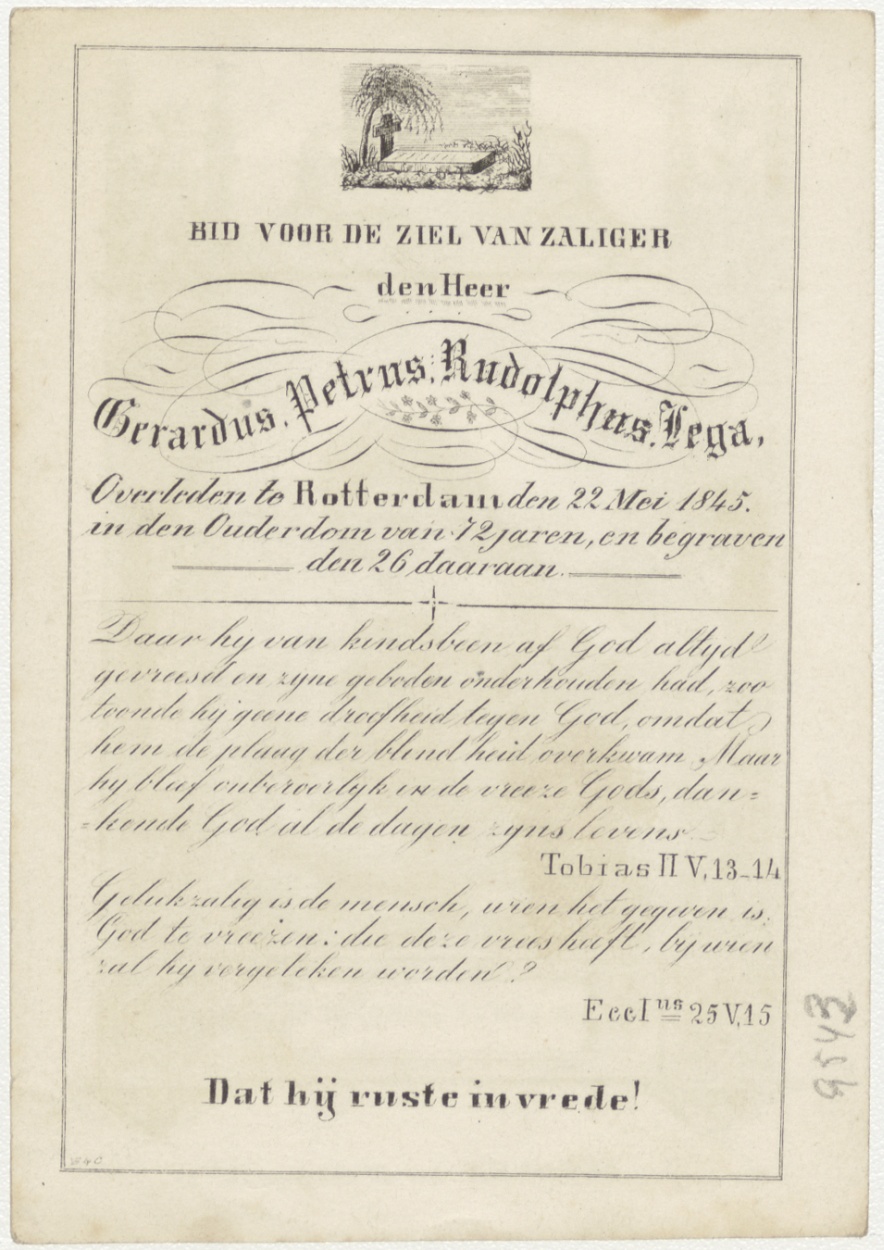 BID VOOR DE ZIEL VAN ZALIGER
den Heer
Gerardus, Petrus, Rudolphus, Lega,
Overleden te Rotterdam den 22 Mei 1845.
in den Ouderdom van 72 jaren, en begraven
den 26 daaraan.
Daar hy van kindsbeen af God altyd
gevreesd en zyne geboden onderhouden had, zoo
toonde hy geene droefheid tegen God, omdat
hem de plaag der blindheid overkwam Maar
hy bleef onberoerlyk in de vreeze Gods, dan=
=kende God al de dagen zyns levens
Tobias II V, 13-14
Gelukzalig is de mensch, wien het gegeven is,
God te vreezen: die deze vrees heeft, bij wien
zal hy vergeleken worden?
EcclIus 25 V, 15
Dat hij ruste in vrede!
9543